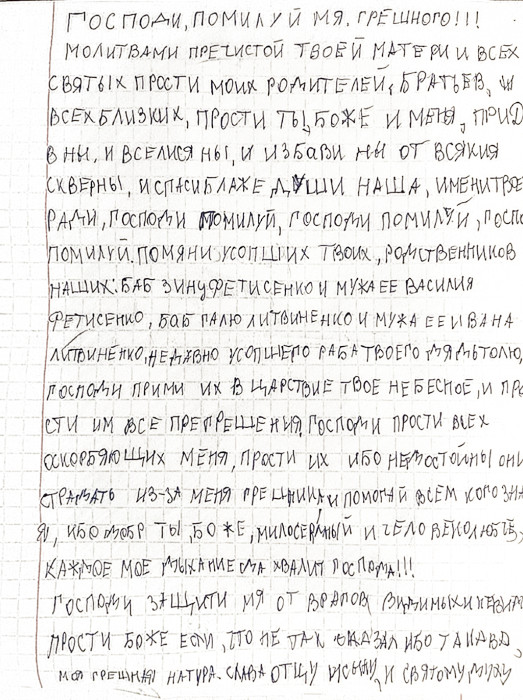 ГОСПОДИ, ПОМИЛУЙ МЯ. ГРЕШНОГО!!!
МОЛИТВАМИ ПРЕЧИСТОЙ ТВОЕЙ МАТЕРИ И ВСЕХ
СВЯТЫХ ПРОСТИ МОИХ РОДИТЕЛЕЙ, БРАТЬЕВ, И
ВСЕХ БЛИЗКИХ, ПРОСТИ ТЫ, БОЖЕ И МЕНЯ, ПРИД
В НЫ, И ВСЕЛИСЯ НЫ, И ИЗБАВИ НЫ ОТ ВСЯКИЯ
СКВЕРНЫ, И СПАСИ БЛАЖЕ ДУШИ НАША, ИМЕНИ ТВОЕ
РАДИ, ГОСПОДИ ПОМИЛУЙ, ГОСПОДИ ПОМИЛУЙ, ГОСПО
ПОМИЛУЙ. ПОМЯНИ УСОПШИХ ТВОИХ, РОДСТВЕННИКОВ
НАШИХ: БАБ ЗИНУ ФЕТИСЕНКО И МУЖА ЕЕ ВАСИЛИЯ
ФЕТИСЕНКО, БАБ ГАЛЮ ЛИТВИНЕНКО И МУЖА ЕЕ ИВАНА
ЛИТВИНЕНКО, НЕДАВНО УСОПШЕГО РАБА ТВОЕГО ДЯДЬ ТОЛЮ,
ГОСПОДИ ПРИМИ ИХ В ЦАРСТВИЕ ТВОЕ НЕБЕСНОЕ, И ПРО
СТИ ИМ ВСЕ ПРЕГРЕШЕНИЯ. ГОСПОДИ ПРОСТИ ВСЕХ
ОСКОРБЯЮЩИХ МЕНЯ, ПРОСТИ ИХ ИБО НЕДОСТОЙНЫ ОНИ
СТРАДАТЬ ИЗ-ЗА МЕНЯ ГРЕШНИКА, И ПОМОГАЙ ВСЕМ КОГО ЗНА
Я, ИБО ДОБР ТЫ, БОЖЕ, МИЛОСЕРДНЫЙ И ЧЕЛОВЕКОЛЮБЕЦ,
КАЖДОЕ МОЕ ДЫХАНИЕ ДА ХВАЛИТ ГОСПОДА!!!
ГОСПОДИ ЗАЩИТИ МЯ ОТ ВРАГОВ ВИДИМЫХ И НЕВИДИМ
ПРОСТИ БОЖЕ ЕСЛИ, ЧТО НЕ ТАК СКАЗАЛ ИБО ТАКОВА
МОЯ ГРЕШНАЯ НАТУРА. СЛАВА ОТЦУ И СЫНУ, И СВЯТОМУ ДУХУ